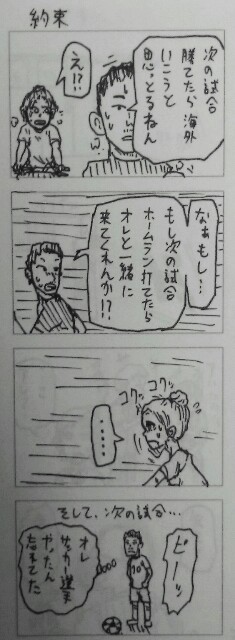 約束
次の試合
勝てたら海外
いこうと
思っとるねん
え!?
なぁもし…
もし次の試合
ホームラン打てたら
オレと一緒に
来てくれんか!?
コクッ
コクッ
・・・・・
そして、次の試合…
ピーッ
10
オレ
サッカー選手
やったん
忘れてた